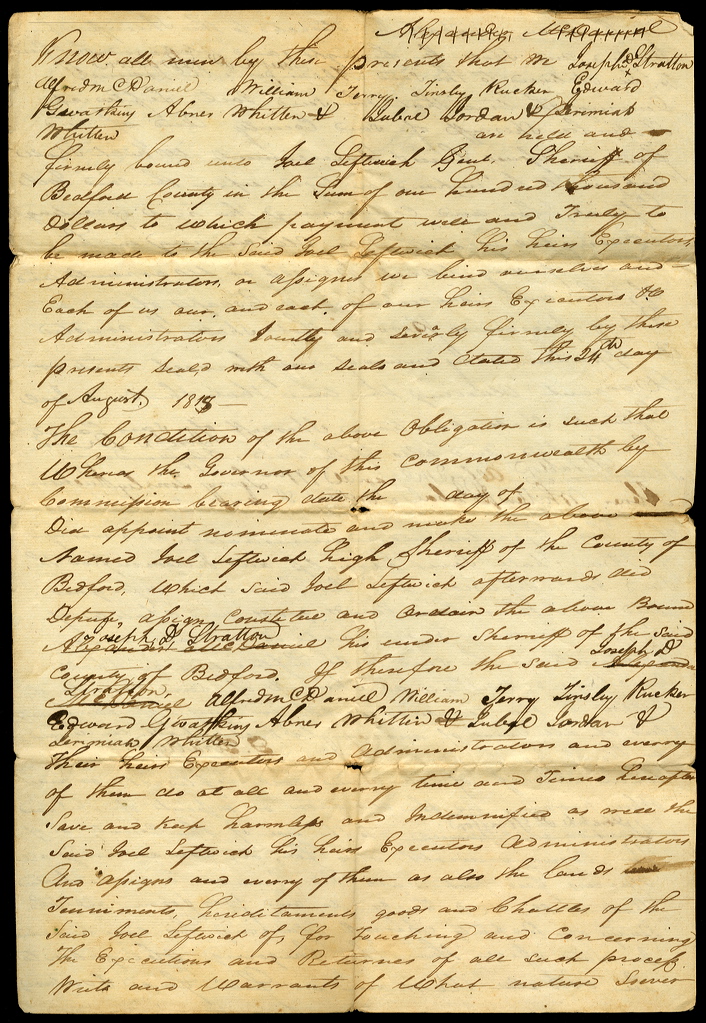 Know all men by these presents that We Joseph D Stratton
Alfred McDaniel William Terry, Tinsley Rucker Edward
Gwatkins Abner Whitten & Jubal Jordan & Jerimiah
Whitten are held and
firmly bound unto Joel Leftwich Gent. Sheriff of
Bedford County in the Sum of one hundred thousand
Dollars to which payment well and Truly to
be made to the said Joel Leftwich his heirs Executors,
Administrators, or assignes we bind ourselves and
Each of us our, and each of our heirs Executors &c
Administrators Jointly and severly firmly by these
presents seald with our seals and dated this 24th day
of August 181
The Condition of the above Obligation is such that
Whereas the Governor of this commonwealth by
Commission bearing date the day of
Did appoint nominate and make the above
Named Joel Leftwich high Sheriff of the County of
Bedford, which said Joel Leftwich afterwards did
Depute, assign, Constitue and Ordain the above Bound
Joseph D Stratton
his under Sherriff of the said
Joseph D
County of Bedford. If therefore the said
Stratton,
Alfred McDaniel William Terry Tinsley Rucker
Edward Gwatkins Abner Whitten & Jubal Jordan &
Jerimiah Whitten
their heirs Executors and Administrators and everry
of them do at all and everry time and Times hereafter
Save and keep harmless and Indemnified as well the
Said Joel Leftwich his heirs Executors Administrators
And assigns and everry of them as also the lands
Tenniments, hereditaments goods and Chattles of the
Said Joel Leftwich of, for Touching and Concerning
The Executions and Returnes of all such process
Writs and Warrants of What nature Soever